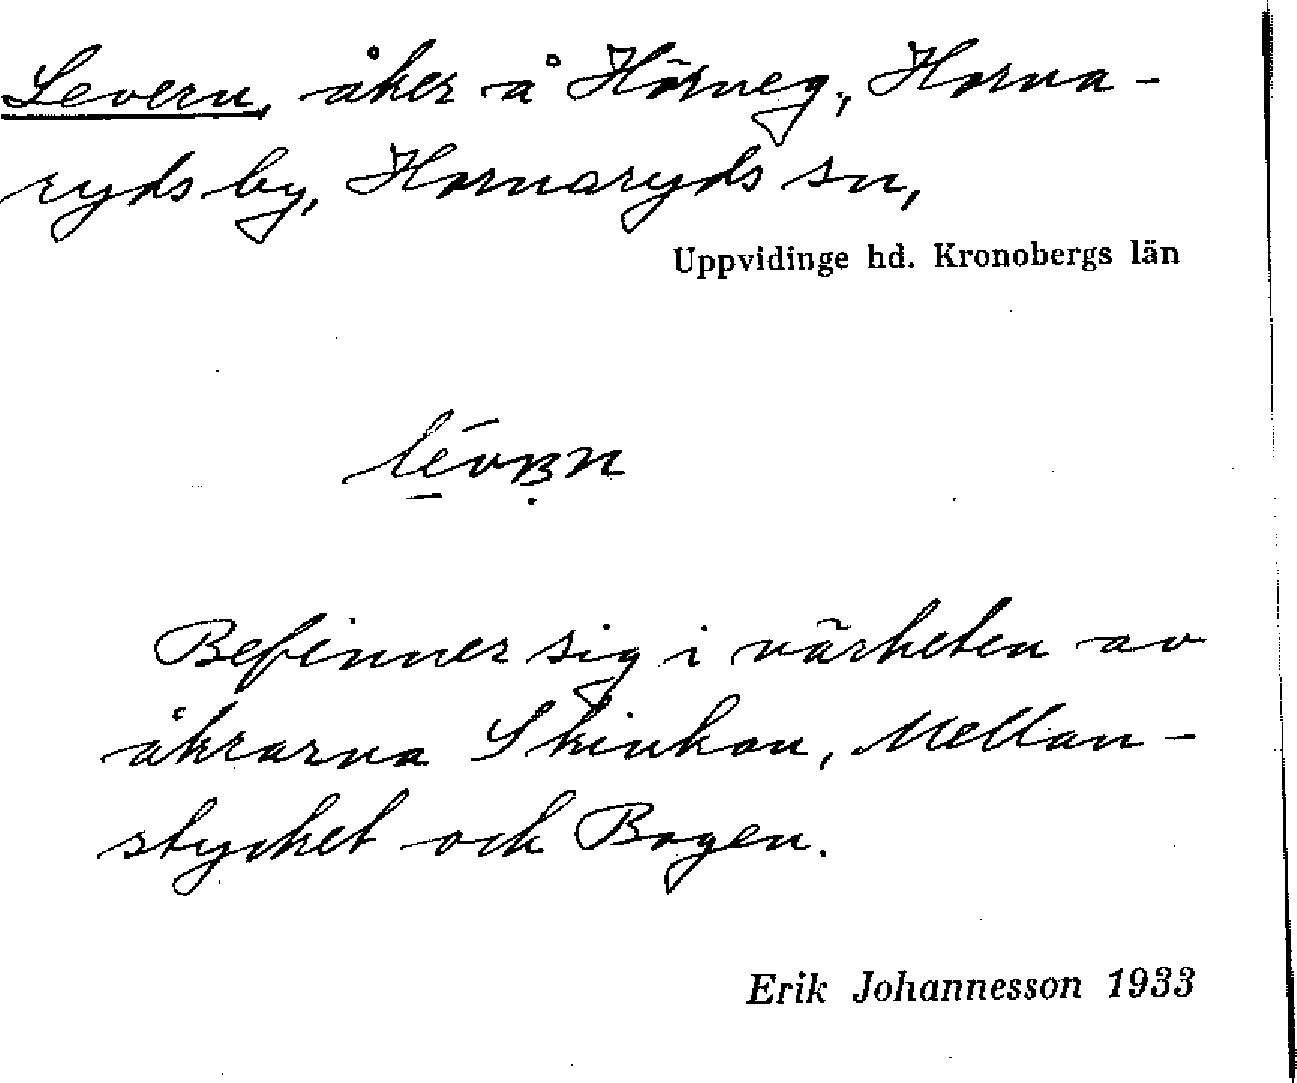 Levern, åker å Hörneg., Horna-
ryds by, Hornaryds sn,
Uppvidinge hd. Kronobergs län
Befinner sig i närheten av
åkrarna Skinkan, Mellan-
stycket och Bogen.
Erik Johannesson 1933